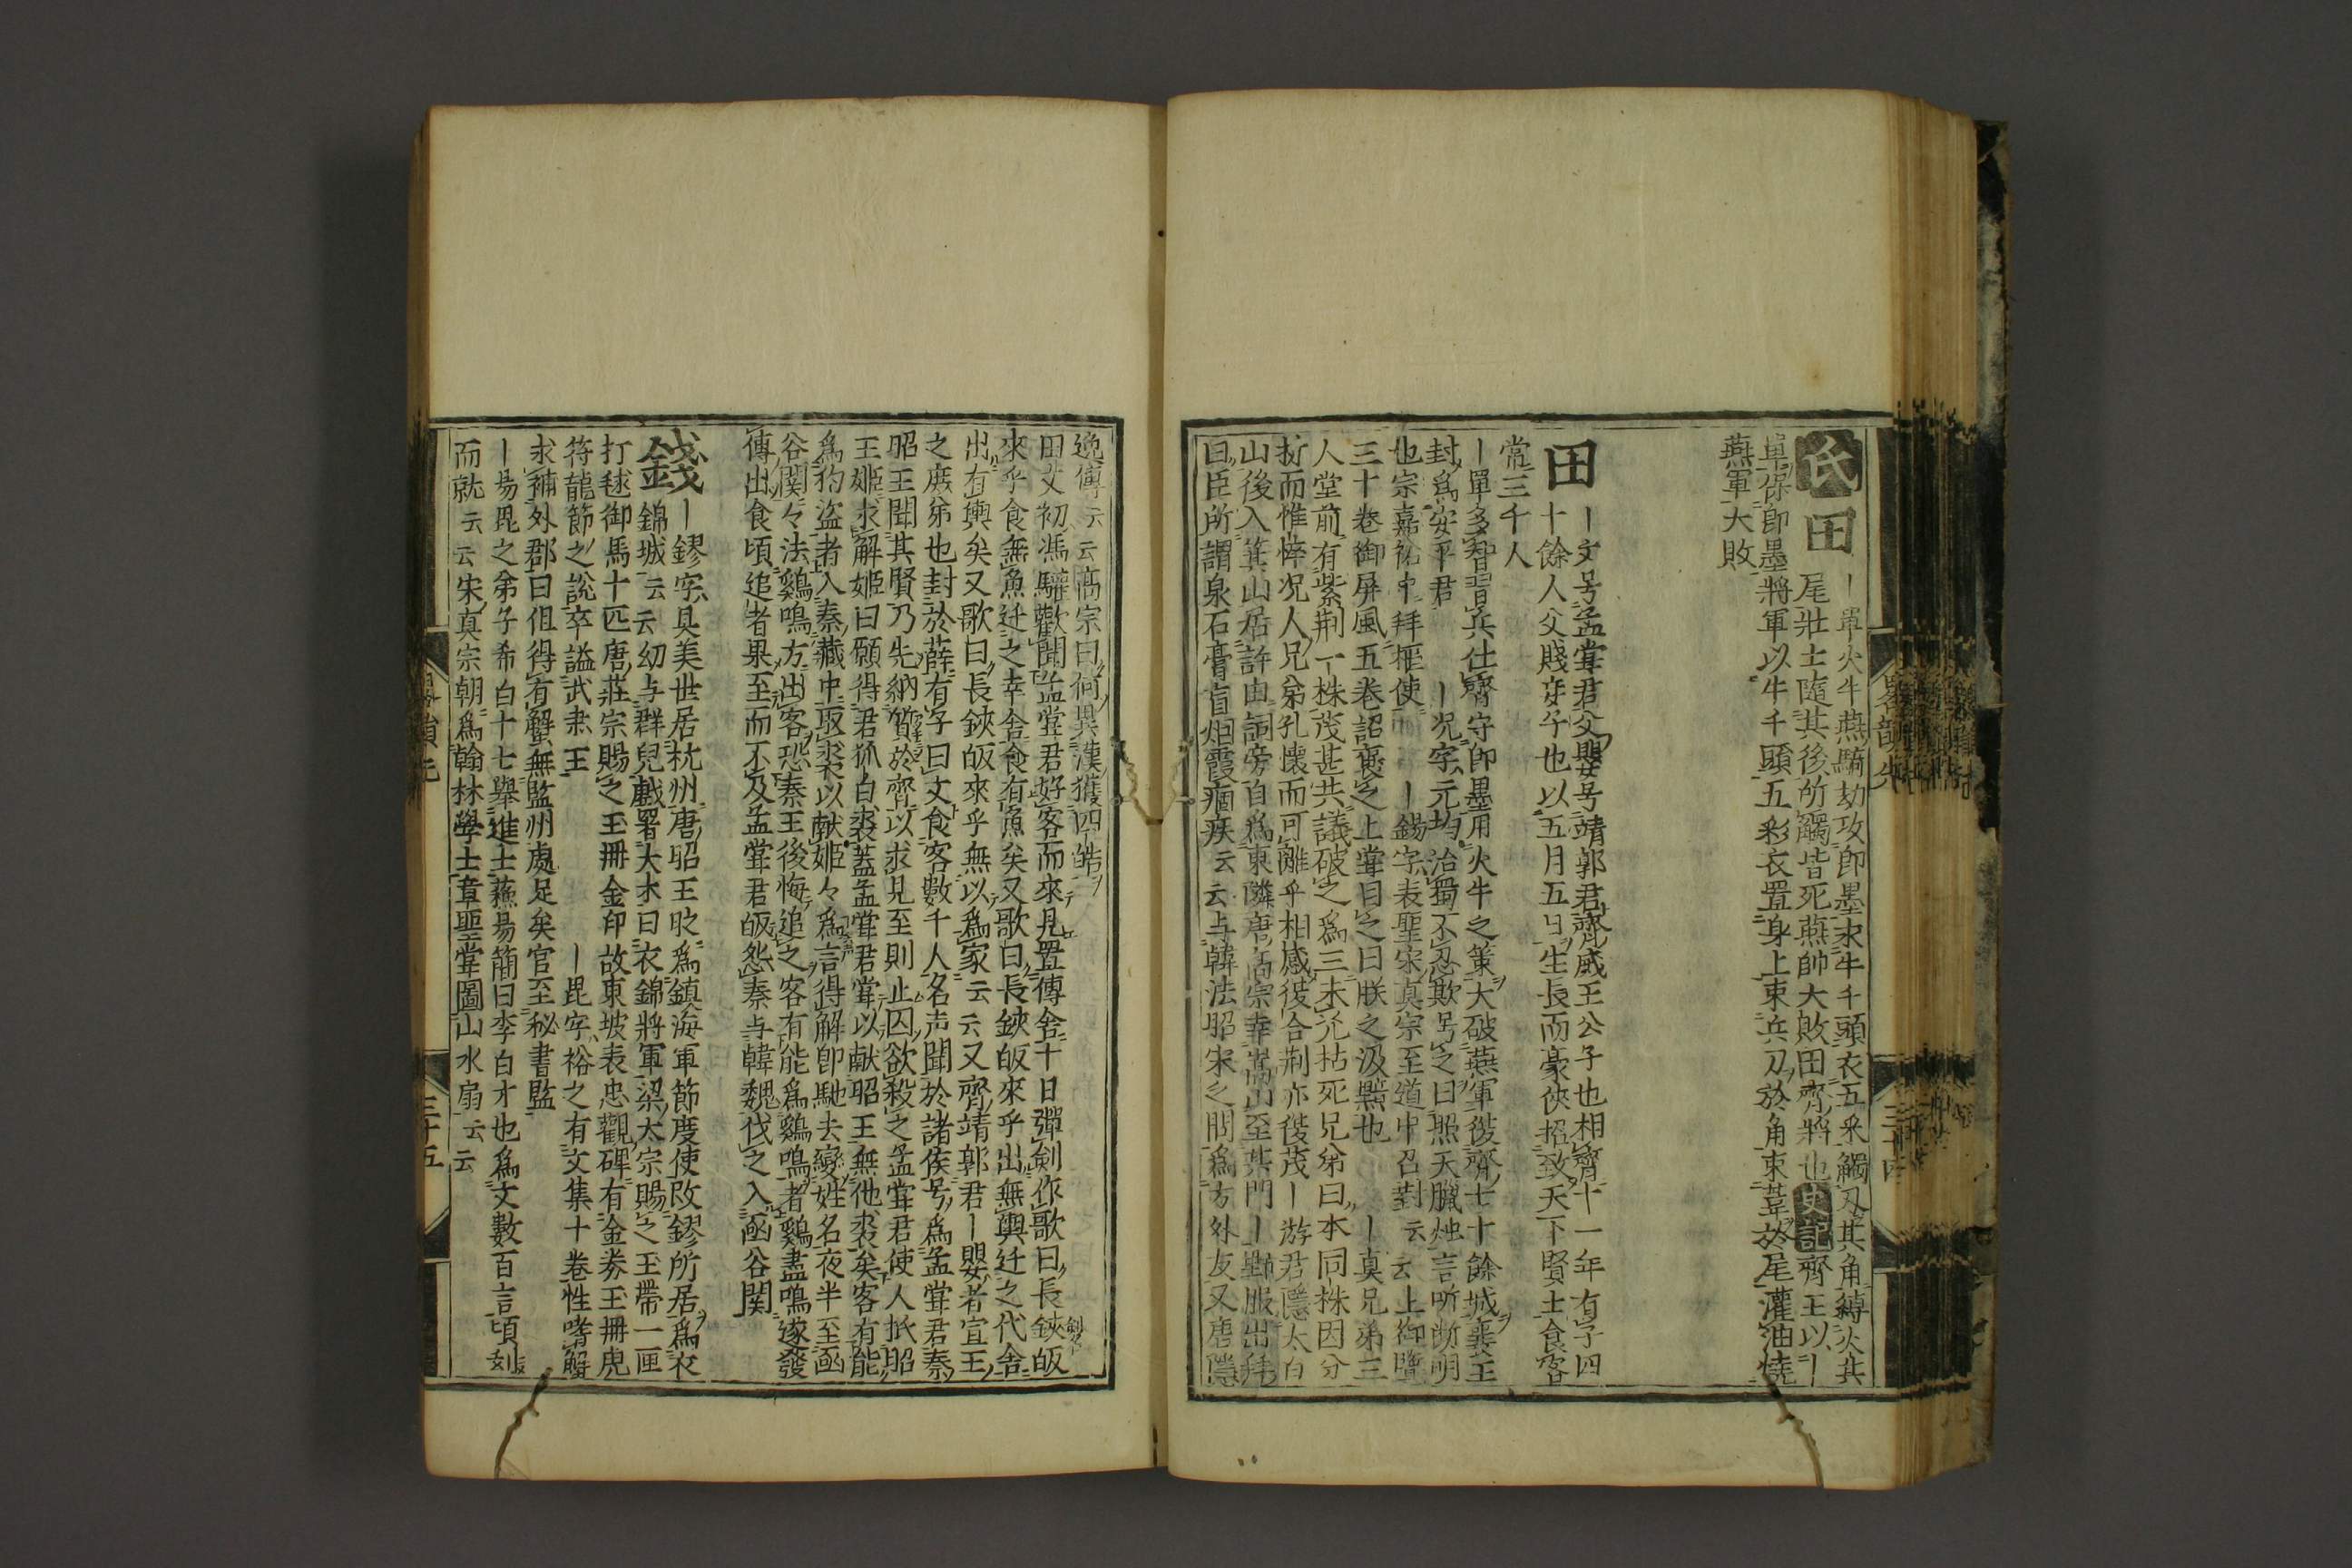 氏田
｜單火牛燕騎劫攻即墨求牛千頭衣五采觸刃其角縛火其
尾壯士隨其後所觸皆死燕帥大敗田齊將也史記齊王以｜
單保即墨將軍以牛千頭五彩衣置身上束兵刀於角束葦於尾灌油燒
燕軍大敗
田
｜文号孟甞君父嬰号靖郭君齊威王公子也相齊十一年有子四
十餘人父賤妾子也以五月五日生長而豪俠招致天下賢士食客
常三千人
｜單多智習兵仕齊守即墨用火牛之策大破燕軍復齊七十餘城襄王
封爲安平君　｜況字元均治蜀不忍欺号之曰照天臘烛言所断明
也宗嘉祐中拜枢使　｜錫字表聖宋真宗至道中召對云云上御覽
三十卷御屏風五卷詔褒之上甞目之曰朕之汲黯也　｜真兄弟三
人堂前有紫荆一株茂甚共議破之爲三未几枯死兄弟曰木同株因分
折而惟悴况人兄弟孔懷而可離乎相感復合荆亦復茂｜游君隱太白
山後入箕山居許由祠旁自爲東隣唐高宗幸嵩山至其門｜野服出拜
曰臣所謂泉石膏盲烟霞痼疾云云与韓法昭宋之問爲方外友又唐隱
逸傳云云高宗曰何異漢獲四皓
田文初馮驩歡聞孟甞君好客而來見置傳舍十日彈剣作歌曰長鋏皈
來乎食無魚迁之幸舍食有魚矣又歌曰長鋏皈來乎出無輿迁之代舍
出有輿矣又歌曰長鋏皈來乎無以爲家云云又齊靖郭君｜嬰者宣王
之庶弟也封於薛有子曰文食客數千人名声聞於諸侯号爲孟甞君秦
昭王聞其賢乃先納質於齊以求見至則止囚欲殺之孟甞君使人抵昭
王姬求解姬曰願得君狐白裘蓋孟甞君甞以献昭王無他裘矣客有能
爲狗盗者入秦藏中取裘以献姬々爲言得解即馳去變姓名夜半至函
谷関々法鷄鳴方出客恐秦王後悔追之客有能爲鷄鳴者鷄盡鳴遂發
傳出食頃追者果至而不及孟甞君皈怨秦与韓魏伐之入函谷関
錢
｜鏐字具美世居杭州唐昭王时爲鎮海軍節度使改鏐所居爲衣
錦城云云幼与群兒戲署大木曰衣錦將軍梁太宗賜之玉帶一匣
打毬御馬十匹唐莊宗賜之玉冊金印故東坡表忠觀碑有金券玉冊虎
符龍節之説卒謚武肃王　｜昆字裕之有文集十卷性嗜蟹
求補外郡曰但得有蟹無監州處足矣官至秘書監
｜易昆之弟子希白十七舉進士蘓易簡曰李白才也爲文數百言頃刻
而就云云宋真宗朝爲翰林學士章聖甞圖山水扇云云
三十五